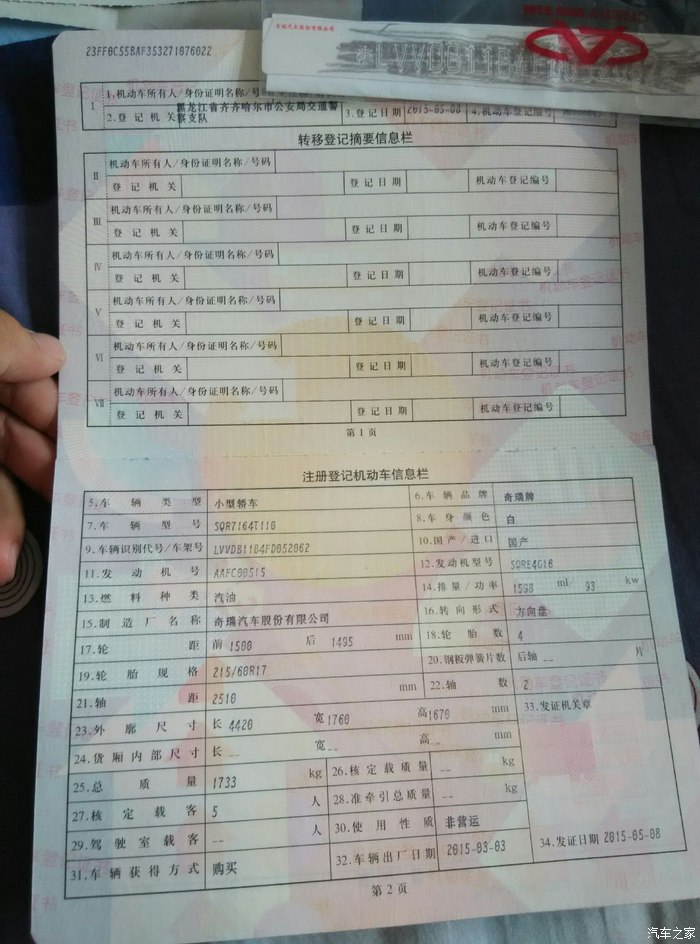 23FF0C55BAF353271076022
奇瑞汽车股份有限公司
*LVVDB11B4FD052062*
I 1.机动车所有人/身份证明名称/号
2.登记机关 黑龙江省齐齐哈尔市公安局交通警察支队 3.登记日期 2015-05-08 4.机动车登记编号
转移登记摘要信息栏
II 机动车所有人/身份证明名称/号码
登记机关 登记日期 机动车登记编号
III 机动车所有人/身份证明名称/号码
登记机关 登记日期 机动车登记编号
IV 机动车所有人/身份证明名称/号码
登记机关 登记日期 机动车登记编号
V 机动车所有人/身份证明名称/号码
登记机关 登记日期 机动车登记编号
VI 机动车所有人/身份证明名称/号码
登记机关 登记日期 机动车登记编号
VII 机动车所有人/身份证明名称/号码
登记机关 登记日期 机动车登记编号
第1页
注册登记机动车信息栏
5.车辆类型 小型轿车 6.车辆品牌 奇瑞牌
7.车辆型号 SQR7164T110 8.车身颜色 白
9.车辆识别代号/车架号 LVVDB11B4FD052062 10.国产/进口 国产
11.发动机号 AAFC00515 12.发动机型号 SQRE4G16
13.燃料种类 汽油 14.排量/功率 1598 ml/ 93 kw
15.制造厂名称 奇瑞汽车股份有限公司 16.转向形式 方向盘
17.轮距 前 1500 后 1495 mm 18.轮胎数 4
19.轮胎规格 215/60R17 20.钢板弹簧片数 后轴 -- 片
21.轴距 2510 mm 22.轴数 2
23.外廓尺寸 长 4420 宽 1760 高 1670 mm 33.发证机关章
24.货厢内部尺寸 长 -- 宽 -- 高 -- mm
25.总质量 1733 kg 26.核定载质量 -- kg
27.核定载客 5 人 28.准牵引总质量 -- kg
29.驾驶室载客 -- 人 30.使用性质 非营运
31.车辆获得方式 购买 32.车辆出厂日期 2015-03-03 34.发证日期 2015-05-08
第2页
汽车之家